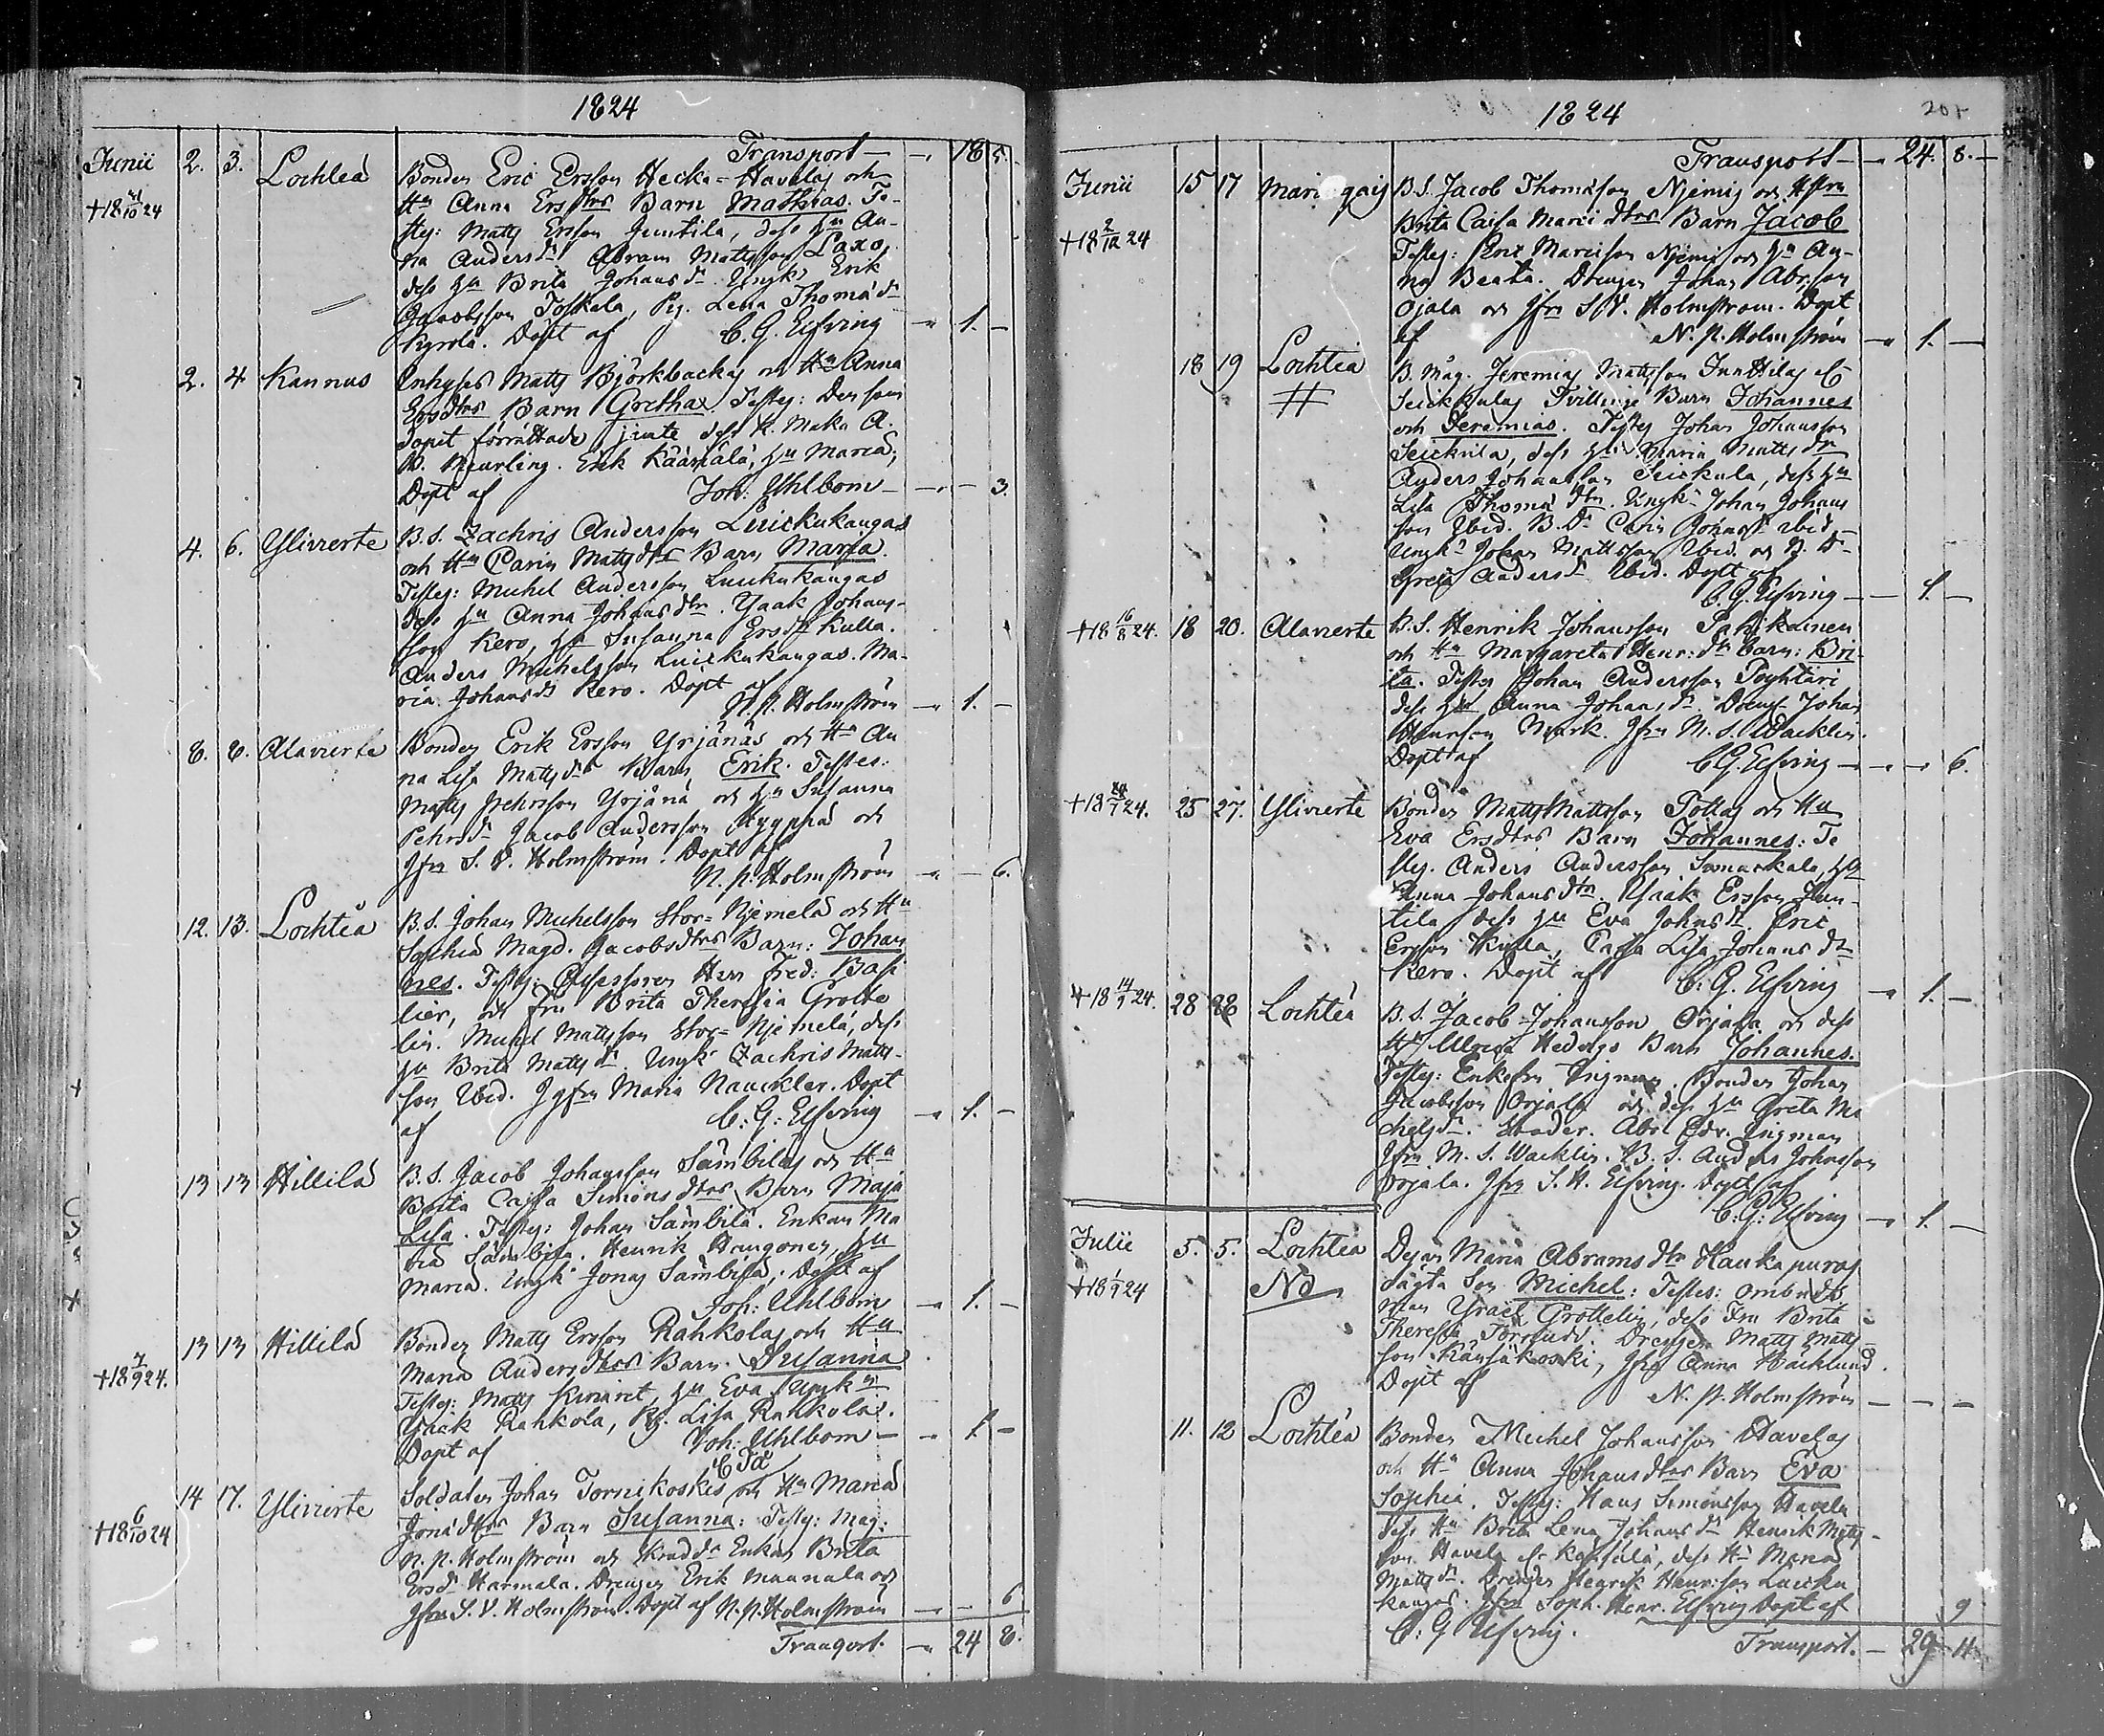 1824
Transport — 18 5.
Junii 2. 3. Lochteå Bonden Eric Ersson Hecka=Havelas och
+18 21/10 24 Hu Anna Ersdtrs Barn Mathias. Te-
stes: Matts Ersson Junttila, dess Hu An-
na Andersdr Abram Mattsson Laxo,
dess Hu Brita Johansdr Ungk: Erik
Jacobsson Toskala, Pig. Lena Thomædr
Kyrola. Dopt af C. G. Elfving — 1. —
2. 4 Kannus Inhyses Matts Björkbackas och Hu Anna
Ersdtrs Barn Gretha. Testes: Den som
dopet förrättade jemte dess k. Maka A.
Neurling. Erik Määttälä, Hu Maria,
Dopt af Joh: Uhlbom — — 3.
4. 6. Ylivierte B. S. Zachris Andersson Luickukangas
och Hu Carin Mattsdtrs Barn Maria.
Testes: Michel Andersson Luickukangas
dess Hu Anna Johansdtr. Isaak Johans-
son Kero, Hu Susanna Ersdr Kulla.
Anders Michelsson Luickukangas. Ma-
ria Johansdr Kero. Dopt af
N. P. Holmström — 1. —
8. 8. Alavierte Bonden Erik Ersson Yrjänäs och Hu An
na Lisa Mattsdrs Barn Erik. Testes:
Matts Pehrsson Yrjänä och Hu Susanna
Pehrsdr Jacob Andersson och
Jfrn S. V. Holmström. Dopt af
N. P. Holmström — — 6.
12. 13. Lochteå B. S. Johan Michelsson Stor=Njemelä och Hu
Sophia Magd. Jacobsdtrs Barn: Johan
nes. Testes: Assessoren Herr Fred: Bass
lier, och Fru Brita Theresia Grotte
lin. Michel Mattsson Stor=Njemelä, dess
Hu Brita Mattsdr Ungk Zachris Matts-
son Ibid. Jgfrn Maria Nauckler. Dopt
af C: G: Elfving — 1. —
13 13 Hillilä B. S. Jacob Johansson Sämbiläs och Hu
Brita Cajsa Simonsdtrs Barn Maja
Lisa. Testes: Johan Sämbilä. Enkan Ma
ria Sämbilä. Henrik Hu
Maria. Ungk Jonas Sämbilä. Dopt af
Joh: Uhlbom — 1. —
13 13 Hillilä Bonden Matts Ersson Rahkolas och Hu
+18 7/9 24. Maria Andersdtrs Barn Susanna
Testes: Matts Hu Eva Ungk
Isaak Rahkola, Pig. Lisa Rahkola.
Dopt af Joh: Uhlbom — 1. —
14 17. Ylivierte Soldaten Johan Tornikoskis och Hu Maria
+18 6/10 24 Jonædtrs Barn Susanna: Testes: Mag:
N. P. Holmström och Enkan Brita
Ersdr Harmala. Drengen Erik Maunula och
Jfrn S. V. Holmström. Dopt af N. P. Holmström — — 6
Transport. — 24 8.
1824 201
Transport — 24. 8. —
Junii 15 17 Marienqaig B. S. Jacob Thomæson Njemis och Hstru
+18 2/12 24 Brita Caisa Marcidtrs Barn Jacob
Testes: Eric Marcison Njemi och Hu An-
na Beata. Drengen Johan Abr:son
Ojala och Jfrn S. V. Holmström. Dopt
af N. P. Holmström — 1. —
18 19 Lochteå B. Måg. Jeremias Mattsson Junttilas et
# Seickulas Tvillinge Barn Johannes
och Jeremias. Testes Johan Johansson
Seickula, dess Hu Maria Mattsdr
Anders Johansson Seickula, dess Hu
Lisa Thomædtr Ungk Johan Johans
son Ibid. B. Dr Carin Johansdr Ibid.
Ungk: Johan Mattsson Ibid. och B. D-
Greta Andersdr Ibid. Dopt af
C. G. Elfving — 1. —
+18 16/8 24. 18 20. Alavierte B. S. Henrik Johansson Pahikainen
och Hu Margareta Henr:dtr Barn: Bri-
ta. Testes Johan Andersson Poyhtäri
dess Hu Anna Johansdr Dreng Johan
Henrsson Jfrn M. S. Wacklin.
Dopt af C G Elfving — — 6.
+18 24/7 24. 25 27. Ylivierte Bonden Matts Mattsson Tottas och Hu
Eva Ersdtrs Barn Johannes: Te
stes. Anders Andersson Hu
Anna Johansdtr. Isaak Ersson Jun-
tila dess Hu Eva Johnsdr Eric
Ersson Kulla, Caisa Lisa Johansdr
Kero. Dopt af C. G. Elfving — 1. —
+18 14/9 24. 28 28 Lochteå B. S. Jacob Johansson Orjala och dess
Hu Ulrica Hedvigs Barn Johannes.
Testes: Enkefru Ingman. Bonden Johan
Jacobsson Orjala och dess Hu Greta Mi
chelsdr. Studer. Abr. Edv. Ingman
Jfrn M. S. Wacklin. B. S. Anders Johnsson
Orjala. Jfrn S. H. Elfving. Dopt af
C: G: Elfving — 1. —
Julii 5. 5. Lochteå Dejan Maria Abramsdtr Haukapuros
+18 1/9 24 No oägta Son Michel: Testes: ombuds
man Israel Grottelin, dess Fru Brita
Theresia Forssund. Drengen Matts Matts-
son Känsäkoski, Jfrn Anna Hacklund.
Dopt af N. P. Holmström — — —
11. 12 Lochteå Bonden Michel Johansson Havelas
och Hu Anna Johansdtrs Barn Eva
Sophia. Testes: Hans Simonsson Havela
dess Hu Brita Lena Johansdr Henrik Matts-
son Havela et dess Hu Maria
Mattsdr. Drengen Henrik Henrsson Luicku
kangas. Jfrn Soph. Henr. Elfving Dopt af 9
C: G Elfving.
Transport. — 29 11